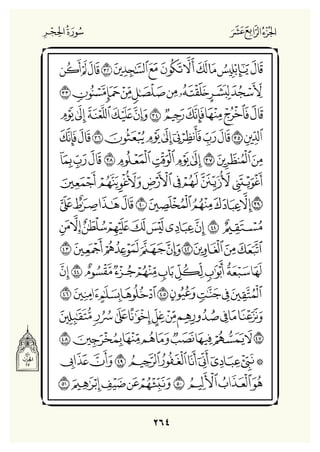 الجُزْءُ الرَّابِعَ عَشَرَ سُورَةُ الحِجْرِ
قَالَ يَٰٓإِبْلِيسُ مَا لَكَ أَلَّا تَكُونَ مَعَ ٱلسَّٰجِدِينَ ٣٢ قَالَ لَمْ أَكُن
لِّأَسْجُدَ لِبَشَرٍ خَلَقْتَهُۥ مِن صَلْصَٰلٍ مِّنْ حَمَإٍ مَّسْنُونٍ ٣٣
قَالَ فَٱخْرُجْ مِنْهَا فَإِنَّكَ رَجِيمٌ ٣٤ وَإِنَّ عَلَيْكَ ٱللَّعْنَةَ إِلَىٰ يَوْمِ
ٱلدِّينِ ٣٥ قَالَ رَبِّ فَأَنظِرْنِىٓ إِلَىٰ يَوْمِ يُبْعَثُونَ ٣٦ قَالَ فَإِنَّكَ
مِنَ ٱلْمُنظَرِينَ ٣٧ إِلَىٰ يَوْمِ ٱلْوَقْتِ ٱلْمَعْلُومِ ٣٨ قَالَ رَبِّ بِمَآ
أَغْوَيْتَنِى لَأُزَيِّنَنَّ لَهُمْ فِى ٱلْأَرْضِ وَلَأُغْوِيَنَّهُمْ أَجْمَعِينَ
٣٩ إِلَّا عِبَادَكَ مِنْهُمُ ٱلْمُخْلَصِينَ ٤٠ قَالَ هَٰذَا صِرَٰطٌ عَلَىَّ
مُسْتَقِيمٌ ٤١ إِنَّ عِبَادِى لَيْسَ لَكَ عَلَيْهِمْ سُلْطَٰنٌ إِلَّا مَنِ
ٱتَّبَعَكَ مِنَ ٱلْغَاوِينَ ٤٢ وَإِنَّ جَهَنَّمَ لَمَوْعِدُهُمْ أَجْمَعِينَ ٤٣
لَهَا سَبْعَةُ أَبْوَٰبٍ لِّكُلِّ بَابٍ مِّنْهُمْ جُزْءٌ مَّقْسُومٌ ٤٤ إِنَّ
ٱلْمُتَّقِينَ فِى جَنَّٰتٍ وَعُيُونٍ ٤٥ ٱدْخُلُوهَا بِسَلَٰمٍ ءَامِنِينَ ٤٦
وَنَزَعْنَا مَا فِى صُدُورِهِم مِّنْ غِلٍّ إِخْوَٰنًا عَلَىٰ سُرُرٍ مُّتَقَٰبِلِينَ
٤٧ لَا يَمَسُّهُمْ فِيهَا نَصَبٌ وَمَا هُم مِّنْهَا بِمُخْرَجِينَ ٤٨
۞ نَبِّئْ عِبَادِىٓ أَنِّىٓ أَنَا ٱلْغَفُورُ ٱلرَّحِيمُ ٤٩ وَأَنَّ عَذَابِى
هُوَ ٱلْعَذَابُ ٱلْأَلِيمُ ٥٠ وَنَبِّئْهُمْ عَن ضَيْفِ إِبْرَٰهِيمَ ٥١
٢٦٤